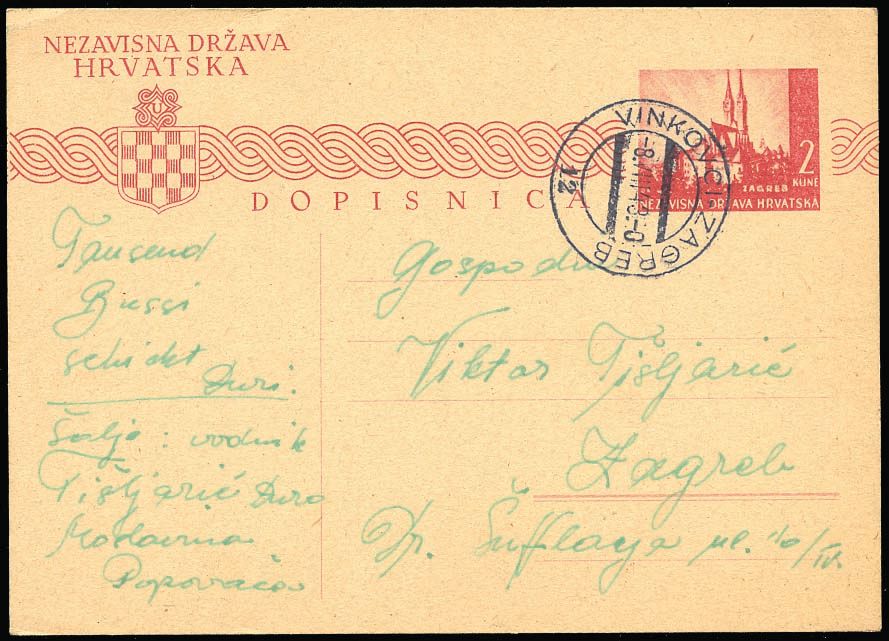 NEZAVISNA DRŽAVA
HRVATSKA
U
DOPISNICA
2
KUNE
ZAGREB
NEZAVISNA DRŽAVA HRVATSKA
VINKOVCI-ZAGREB
12
Tausend
Bussi
schickt
Đuri.
Šalje: vodnik
Tišljarić Đuro
Moslavina
Popovača
Gospodin
Viktor Tišljarić
Zagreb
Dr. Šufflaya ul.